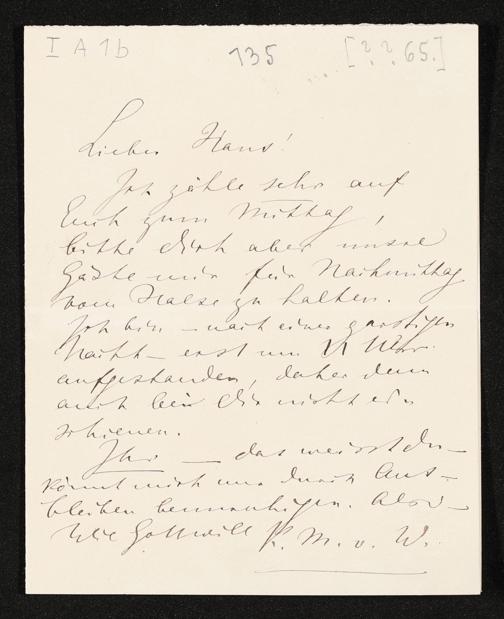 I A 1b 135 [?.?.65.]
Lieber Hans!
Ich zähle sehr auf
Euch zum Mittag,
bitte dich aber unsre
Gäste mir für Nachmittag
vom Halse zu halten.
Ich bin – nach einer garstigen
Nacht – erst um 11 Uhr
aufgestanden, daher denn
auch bei dir nicht er-
schienen.
Ihr – das weisst du –
könnt mich nur durch Aus-
bleiben beunruhigen. Also –
Wie Gott will K. M. v. W.